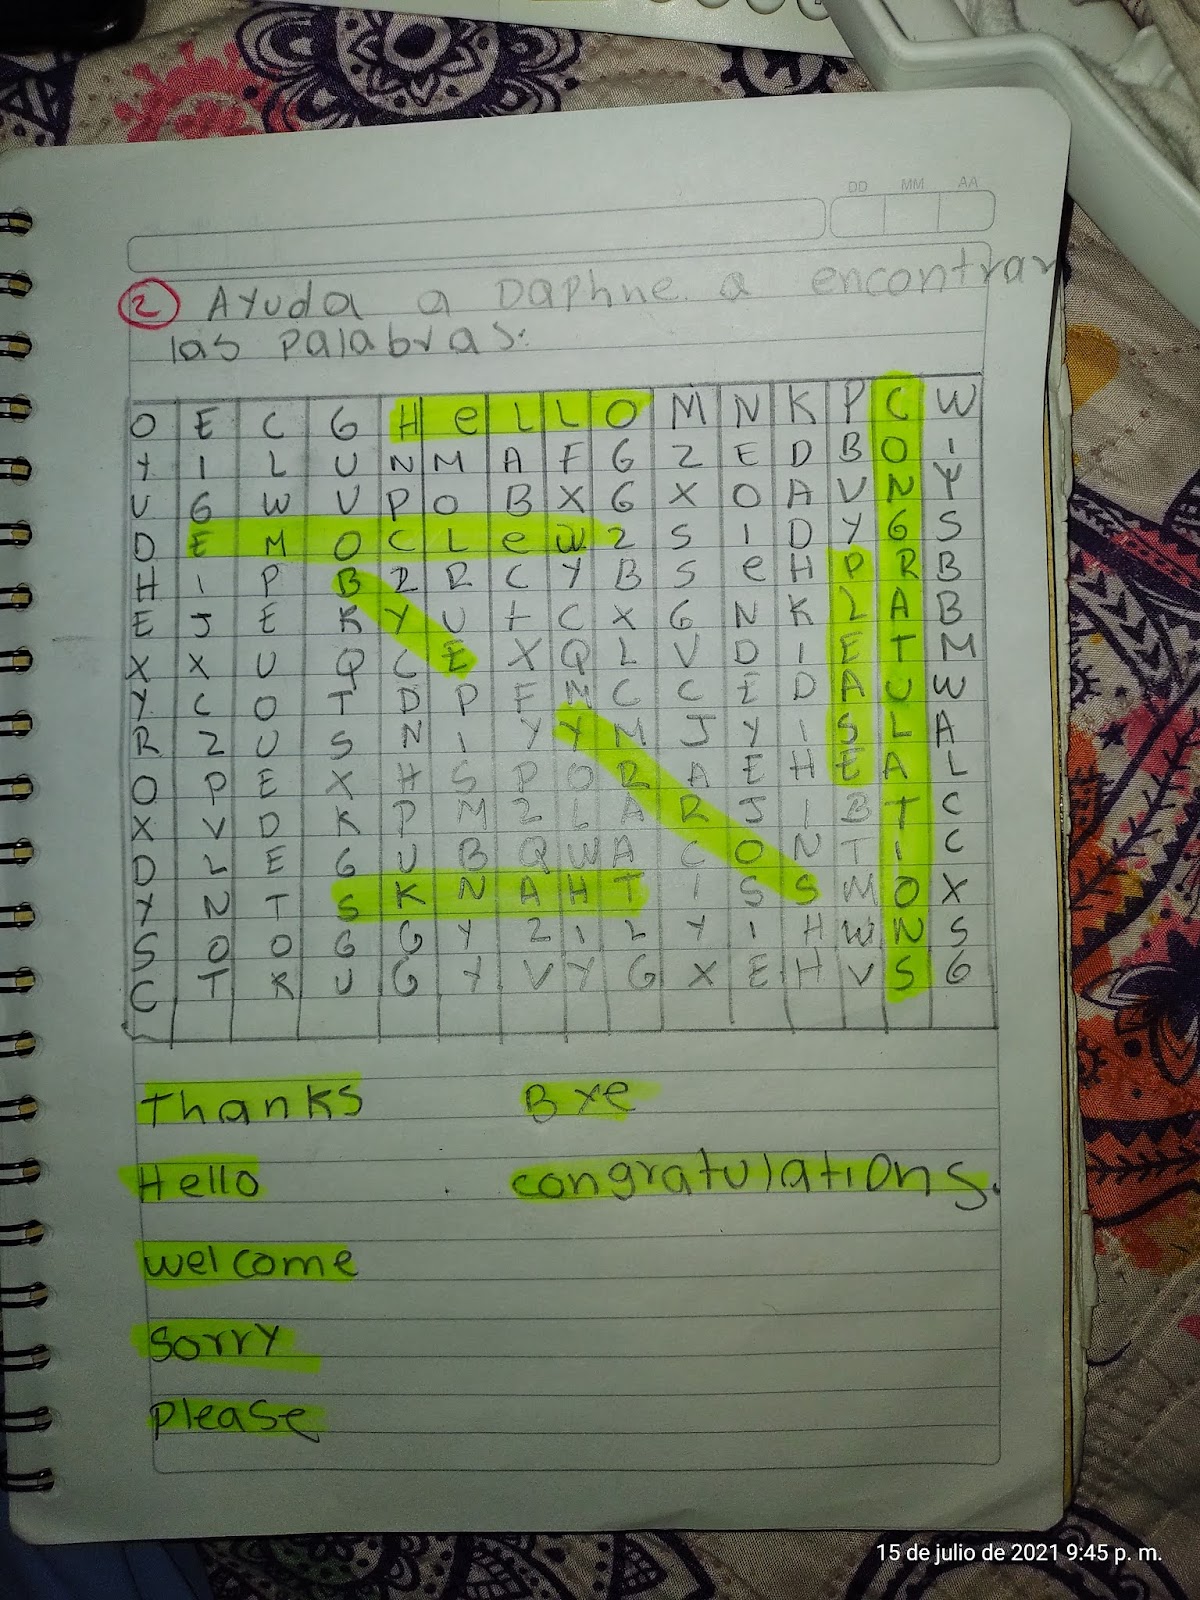 DD MM AA
2 Ayuda a Daphne a encontrar
las palabras:
O E C G H e L L O M N K P C W
Y I L U N M A F G Z E D B O I
U G W V P O B X G X O A V N Y
D E M O C L e W 2 S I D Y G S
H I P B 2 R C Y B S e H P R B
E J E K Y U t C X G N K L A B
X X U Q C E X Q L V D I E T M
Y C O T D P F N C C E D A U W
R 2 U S N I Y Y M J Y I S L A
O P E X H S P O R A E H E A L
X V D K P M 2 L A R J I B T C
D L E G U B Q W A C O N T I C
Y N T S K N A H T I S S M O X
S O O G G Y 2 I L Y I H W N S
C T R U G Y V Y G X E H V S G
Thanks Bye
Hello congratulations.
welcome
Sorry
please
15 de julio de 2021 9:45 p. m.